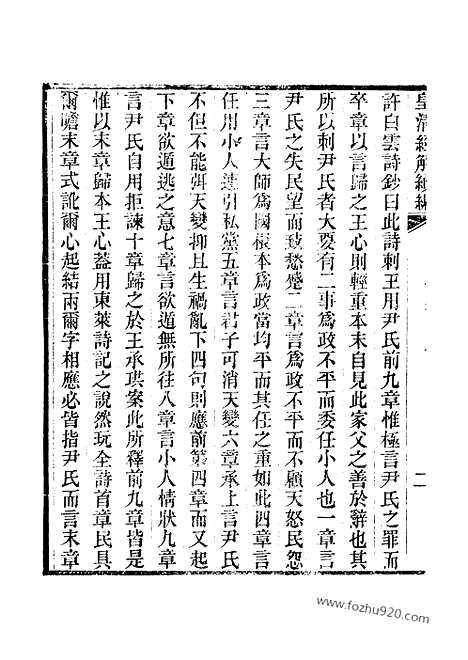 皇清經解續編
許白雲詩鈔曰此詩刺王用尹氏前九章惟極言尹氏之罪而
卒章以言歸之王心則輕重本末自見此家父之善於辭也其
所以刺尹氏者大要有二事爲政不平而委任小人也一章言
尹氏之失民望而致愁蹙二章言爲政不平而不顧天怒民怨
三章言大師爲國根本爲政當均平而其任之重如此四章言
任用小人連引私黨五章言君子可消天變六章承上言尹氏
不但不能弭天變抑且生禍亂下四句則應前第四章而又起
下章欲遁逃之意七章言欲遁無所往八章言小人情狀九章
言尹氏自用拒諫十章歸之於王承珙案此所釋前九章皆是
惟以末章歸本王心蓋用東萊詩記之說然玩全詩首章民具
爾瞻末章式訛爾心起結兩爾字相應必皆指尹氏而言末章
二
www.fozhu920.com